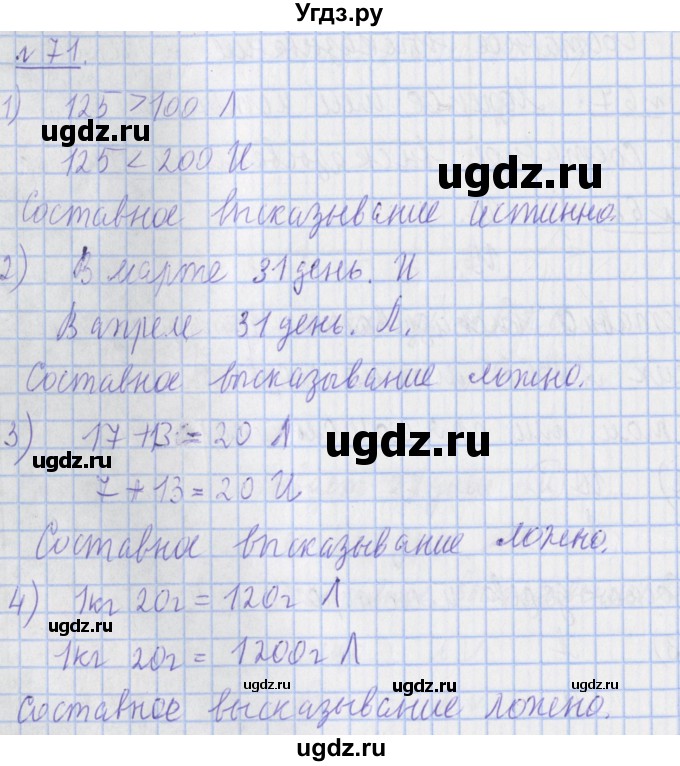 Угдз.ру
№ 71.
1) 125 > 100 Л
ugdz.ru
ugdz.ru
125 < 200 И
Составное высказывание истинно.
2) В марте 31 день. И
В апреле 31 день. Л.
Составное высказывание ложно.
3) 17 + 13 = 20 Л
ugdz.ru
ugdz.ru
7 + 13 = 20 И
Составное высказывание ложно.
4) 1кг 20г = 120г Л
ugdz.ru
1кг 20г = 1200г Л
ugdz.ru ugdz.ru ugdz.ru
Составное высказывание ложно.
ugdz.ru